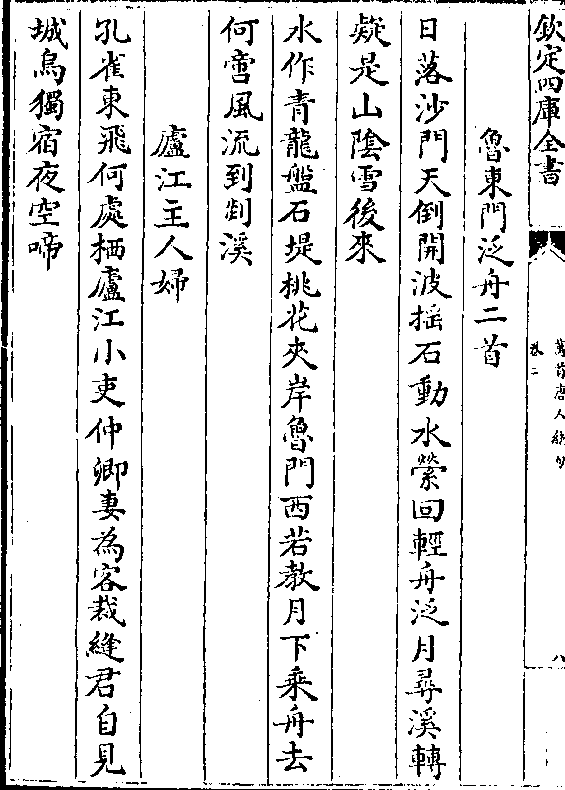 欽定四庫全書
萬首唐人絶句
卷二
八
魯東門泛舟二首
日落沙門天倒開波揺石動水縈回輕舟泛月尋溪轉
疑是山陰雪後來
水作青龍盤石堤桃花夾岸魯門西若教月下乘舟去
何啻風流到剡溪
廬江主人婦
孔雀東飛何處栖廬江小吏仲卿妻為客裁縫君自見
城烏獨宿夜空啼